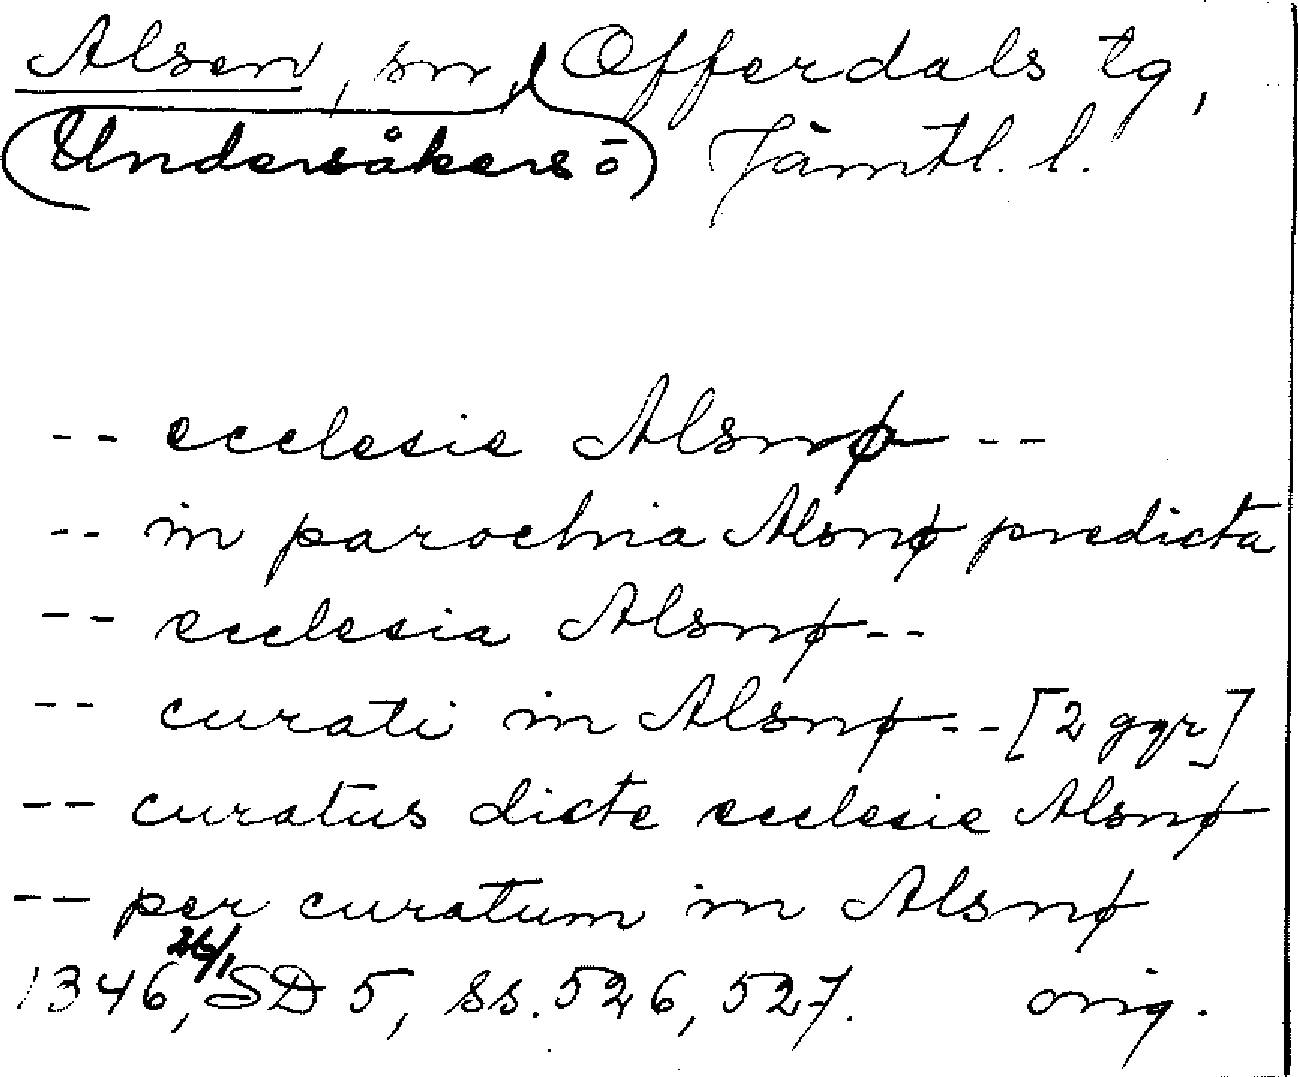 Alsen, sn, Offerdals tg,
(Undersåkers ō) Jämtl. l.
-- ecclesie Alsnø --
-- in parochia Alsnø predicta
-- ecclesia Alsnø --
-- curati in Alsnø -- [2 ggr]
-- curatus dicte ecclesie Alsnø
-- per curatum in Alsnø
1346, 26/1 SD 5, ss. 526, 527. orig.